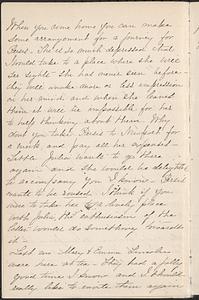 When you come home you can make
some arrangement for a journey for
Bessie. She is so much depressed that
I would take to a place where she will
see sights she has never seen before
they will make more or less impression
on her mind and when she leaves
them it will be impossible for her
to help thinking about them. Why
don't you take Bessie to Newport for
a week and pay all her expenses—
Little Julia wants to go there
again and she would be delighted
to accompany you I know. Bessie
wants to be roused. I think if you
were to take her to a lively place
with Julia, the enthusiasm of the
latter would do something towards
it.
Last eve Mary & Emma Lincoln
were here at tea— they had a jolly
good time I know and I should
really like to invite them again